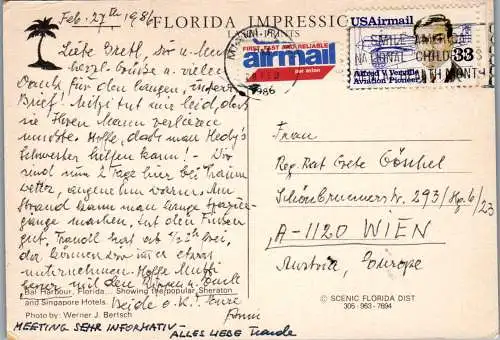 Feb. 27th 1986
FLORIDA IMPRESSIO
PRINTS
Liebe Gretl, dir u. Mutti
herzl. Grüße u. vielen
Dank für den langen, interr.
Brief! Mitzi tut mir leid, daß
sie ihren Mann verlieren
musste. Hoffe, dass man Hedy's
Schwester helfen kann! - Wir
sind nun 2 Tage hier bei Traum
wetter, angenehm warm. Am
Strand kann man lange Spazier-
gänge machen, tut den Füßen
gut. Traudl hat ab 1/2 3h frei,
da können wir immer etwas
unternehmen. Hoffe Mutti
Beide o.K.! Eure
MEETING SEHR INFORMATIV -
ALLES LIEBE Traude
Bal Harbour, Florida... Showing the popular Sheraton
and Singapore Hotels.
Photo by: Werner J. Bertsch
FIRST, FAST AND RELIABLE
airmail
par avion
1986
USAirmail
33
Alfred V. Verville
Aviation Pioneer
SMILE AMERICA
NATIONAL CHILD
MONTH
Frau
Reg. Rat Grete Göschel
Schönbrunnerstr. 293/Stg. 6/23
A-1120 WIEN
Austria, Europe
© SCENIC FLORIDA DIST
305-963-7694